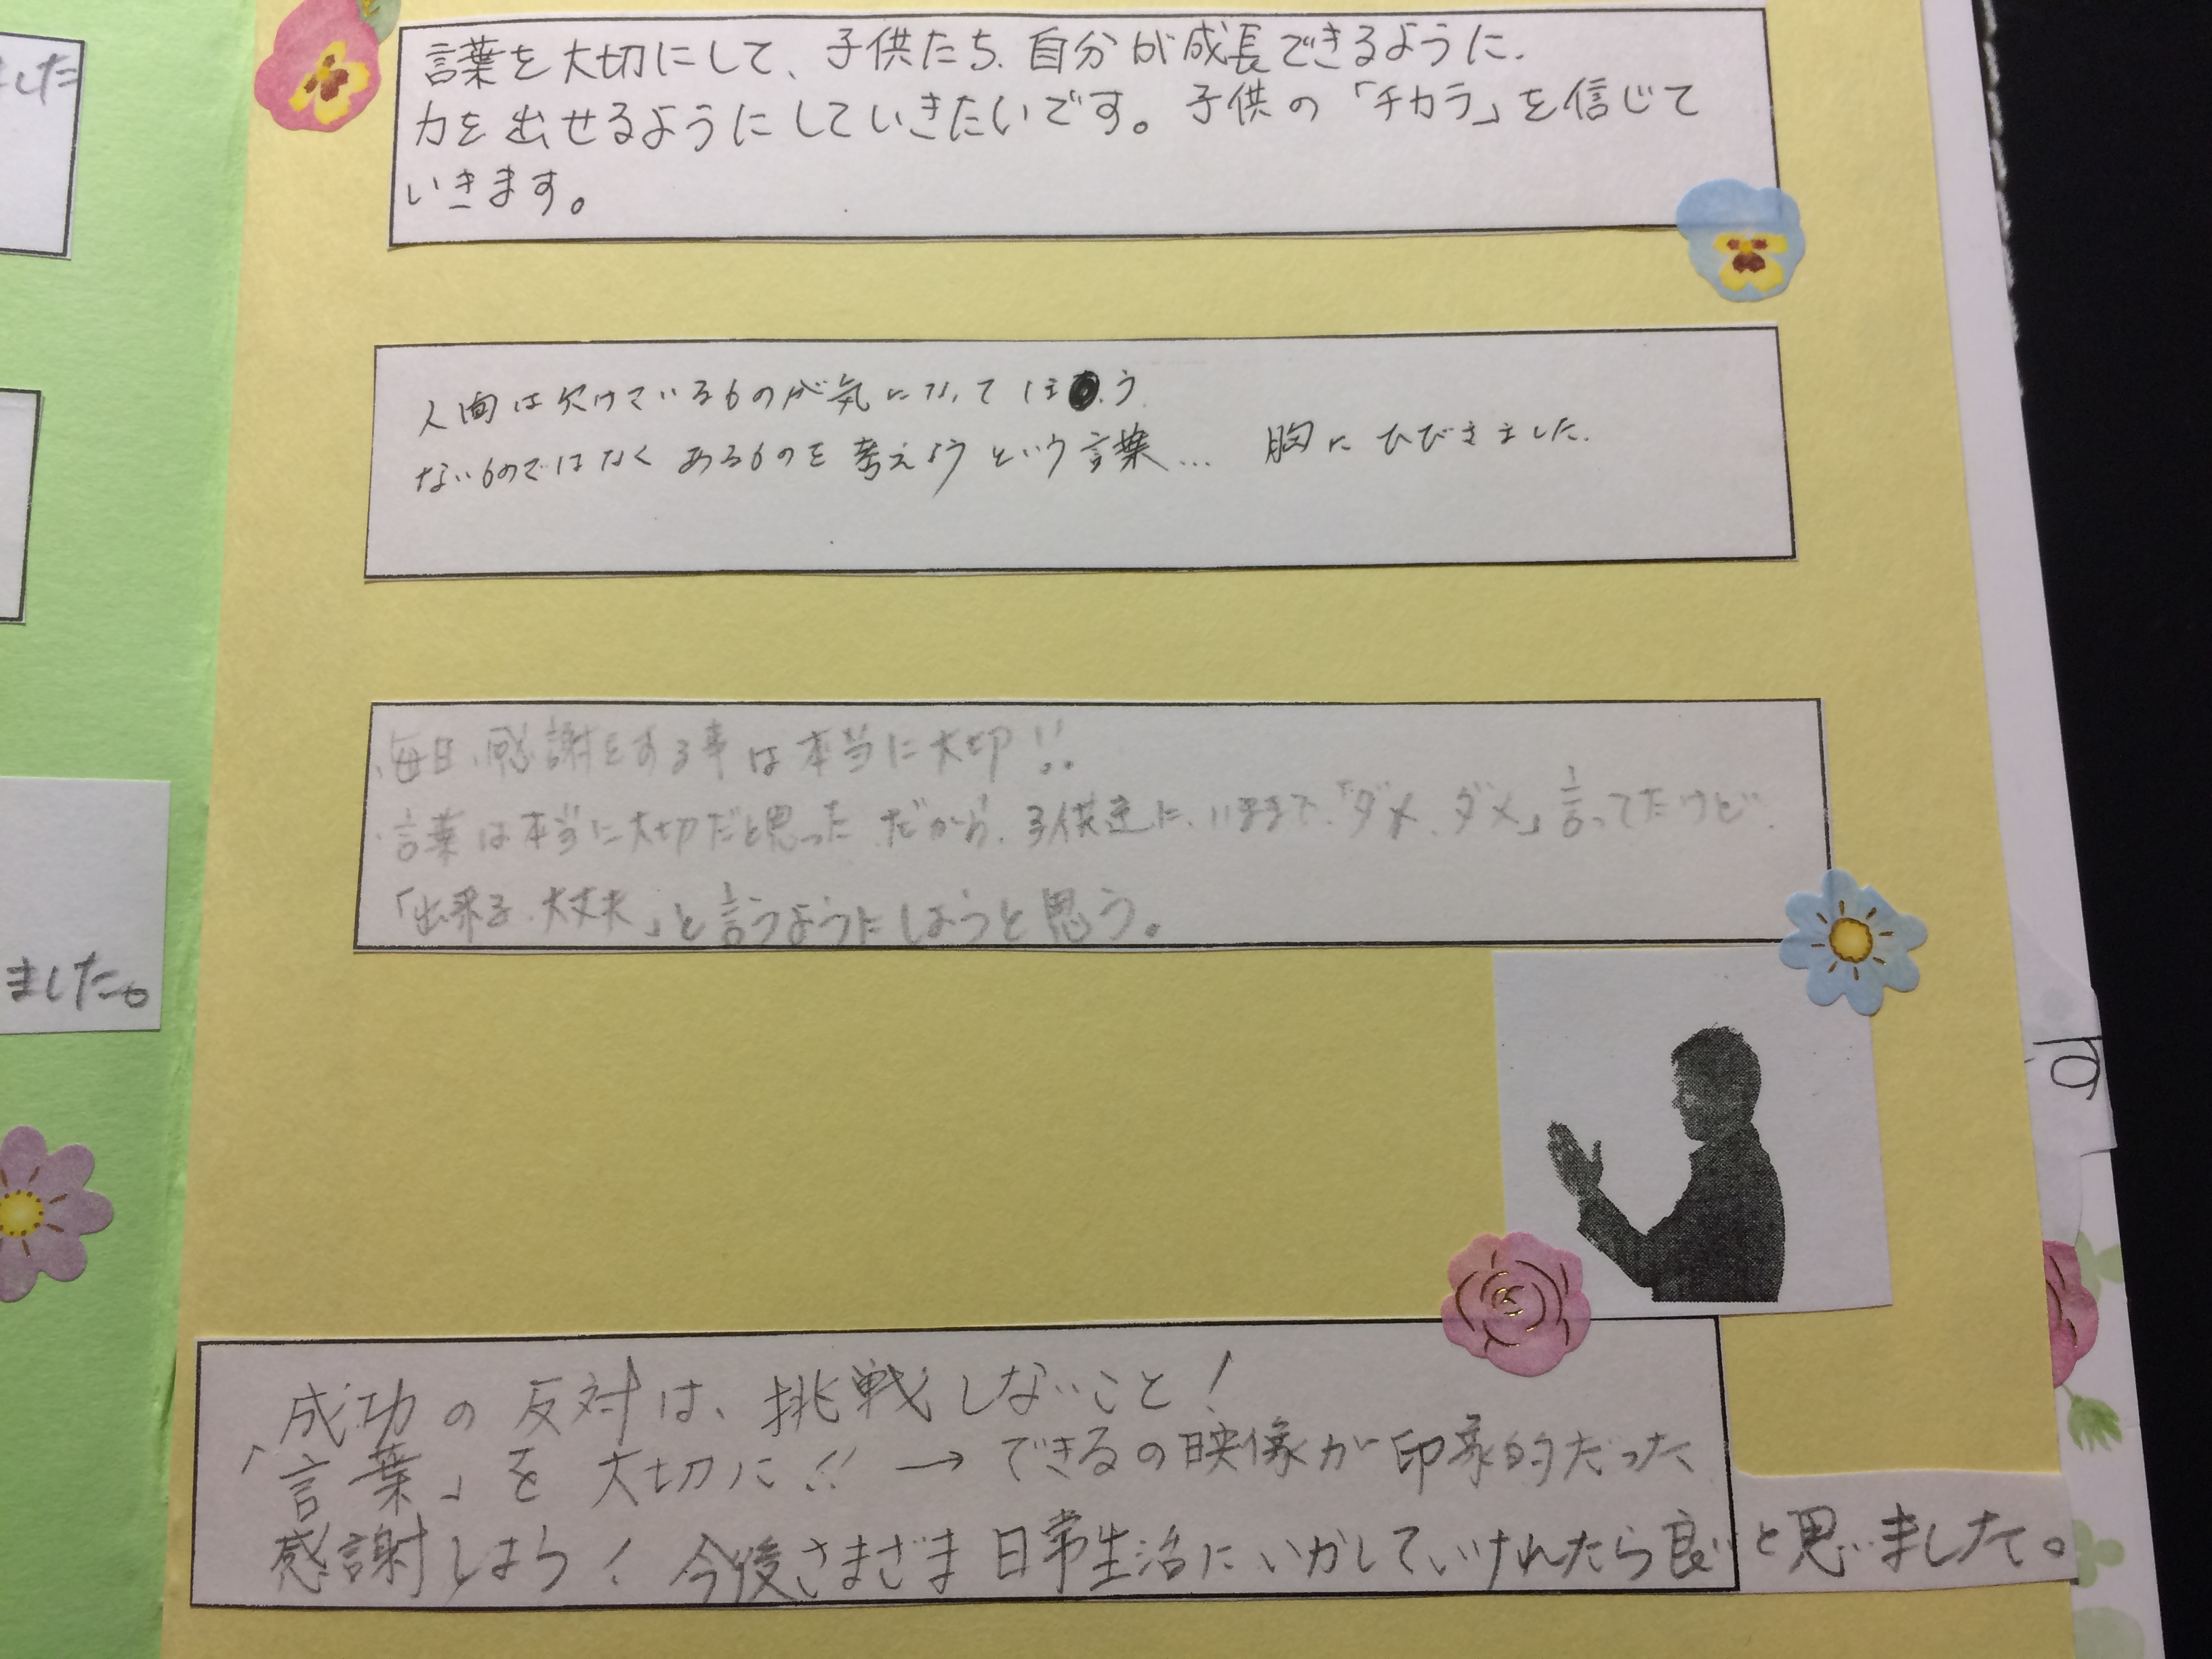 言葉を大切にして、子供たち、自分が成長できるように、
力を出せるようにしていきたいです。子供の「チカラ」を信じて
いきます。
人間は欠けているものが気になってしまう
ないものではなくあるものを考えようという言葉… 胸にひびきました.
・毎日、感謝をする事は本当に大切!!
・言葉は本当に大切だと思った だから、子供達に、いままで、「ダメ、ダメ」言ってたけど、
「出来る、大丈夫」と言うようにしようと思う。
成功の反対は、挑戦しないこと!
「言葉」を大切に!! → できるの映像が印象的だった
感謝しよう! 今後さまざま日常生活にいかしていけたら良いと思いました。
した
ました。
す